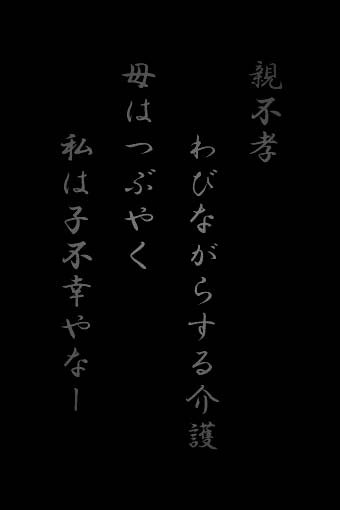 親不孝
わびながらする介護
母はつぶやく
私は子不幸やなー